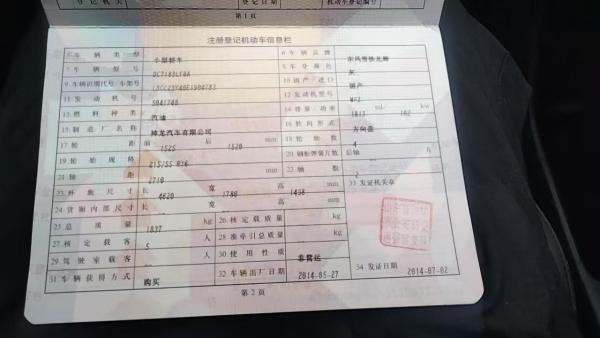 登记机关 登记日期 机动车登记编号
第1页
注册登记机动车信息栏
5.车辆类型 小型轿车 6.车辆品牌 东风雪铁龙牌
7.车辆型号 DC7183LYBA 8.车身颜色 灰
9.车辆识别代号/车架号 10.国产/进口 国产
11.发动机号 12.发动机型号
13.燃料种类 汽油 14.排量/功率 ml/ kw
15.制造厂名称 神龙汽车有限公司 16.转向形式 方向盘
17.轮距 前 1525 后 1520 mm 18.轮胎数 4
19.轮胎规格 215/55 R16 20.钢板弹簧片数 后轴
21.轴距 2710 mm 22.轴数 2
23.外廓尺寸 长 4620 宽 1780 高 1498 mm 33.发证机关章
24.货厢内部尺寸 长 宽 高 mm
25.总质量 1837 kg 26.核定载质量 kg
27.核定载客 5 人 28.准牵引总质量 kg
29.驾驶室载客 人 30.使用性质 非营运
31.车辆获得方式 购买 32.车辆出厂日期 2014-05-27 34.发证日期 2014-07-02
第2页